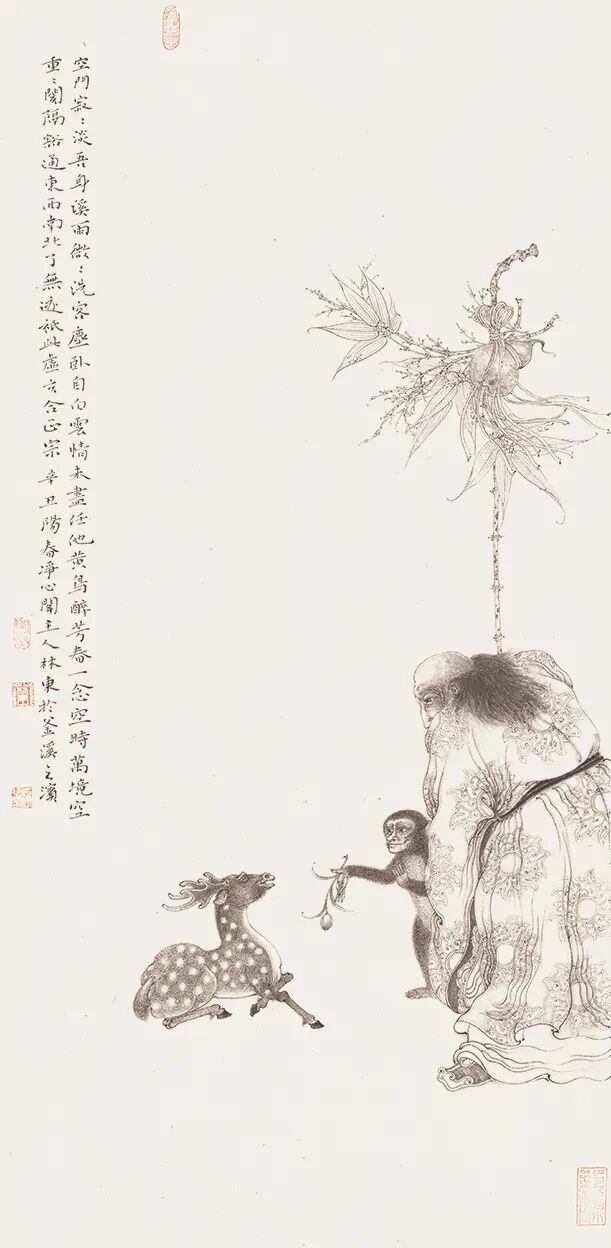 空門寂〻淡吾身溪雨微〻洗客塵臥自白雲情未盡任他黃鳥醉芳春一念空時萬境空
重〻關隔豁通東西南北了無迹祇此虛玄合正宗 辛丑陽春淨心閣主人林東於釜溪之濱